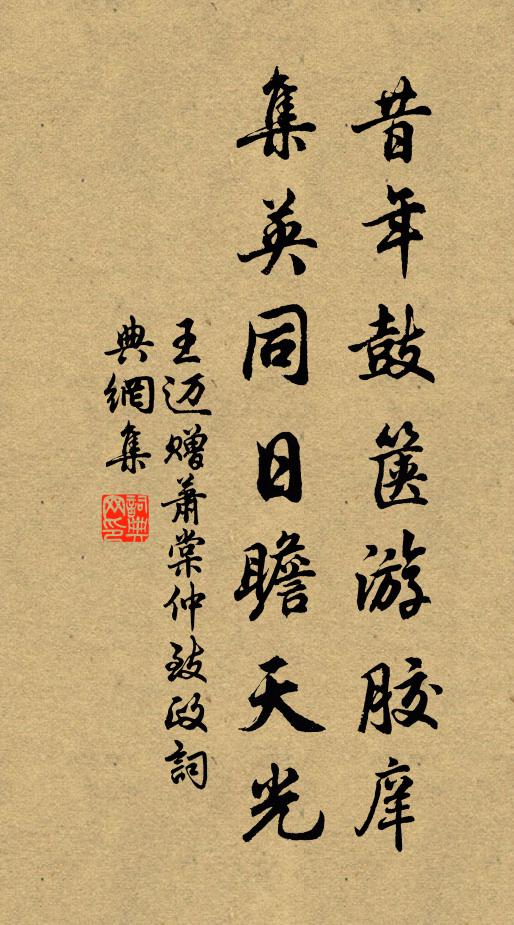 昔年鼓箧游胶庠
集英同日瞻天光
王迈赠萧棠仲致政詞
典網集
詞典网印